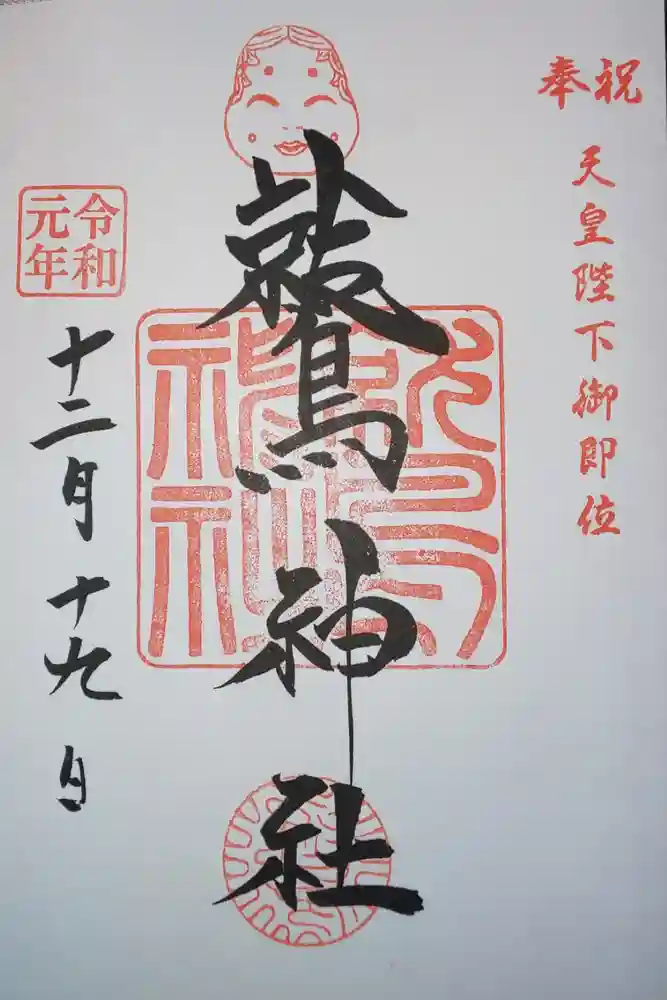 奉祝
天皇陛下御即位
鷲神社
令和
元年
十二月十九日